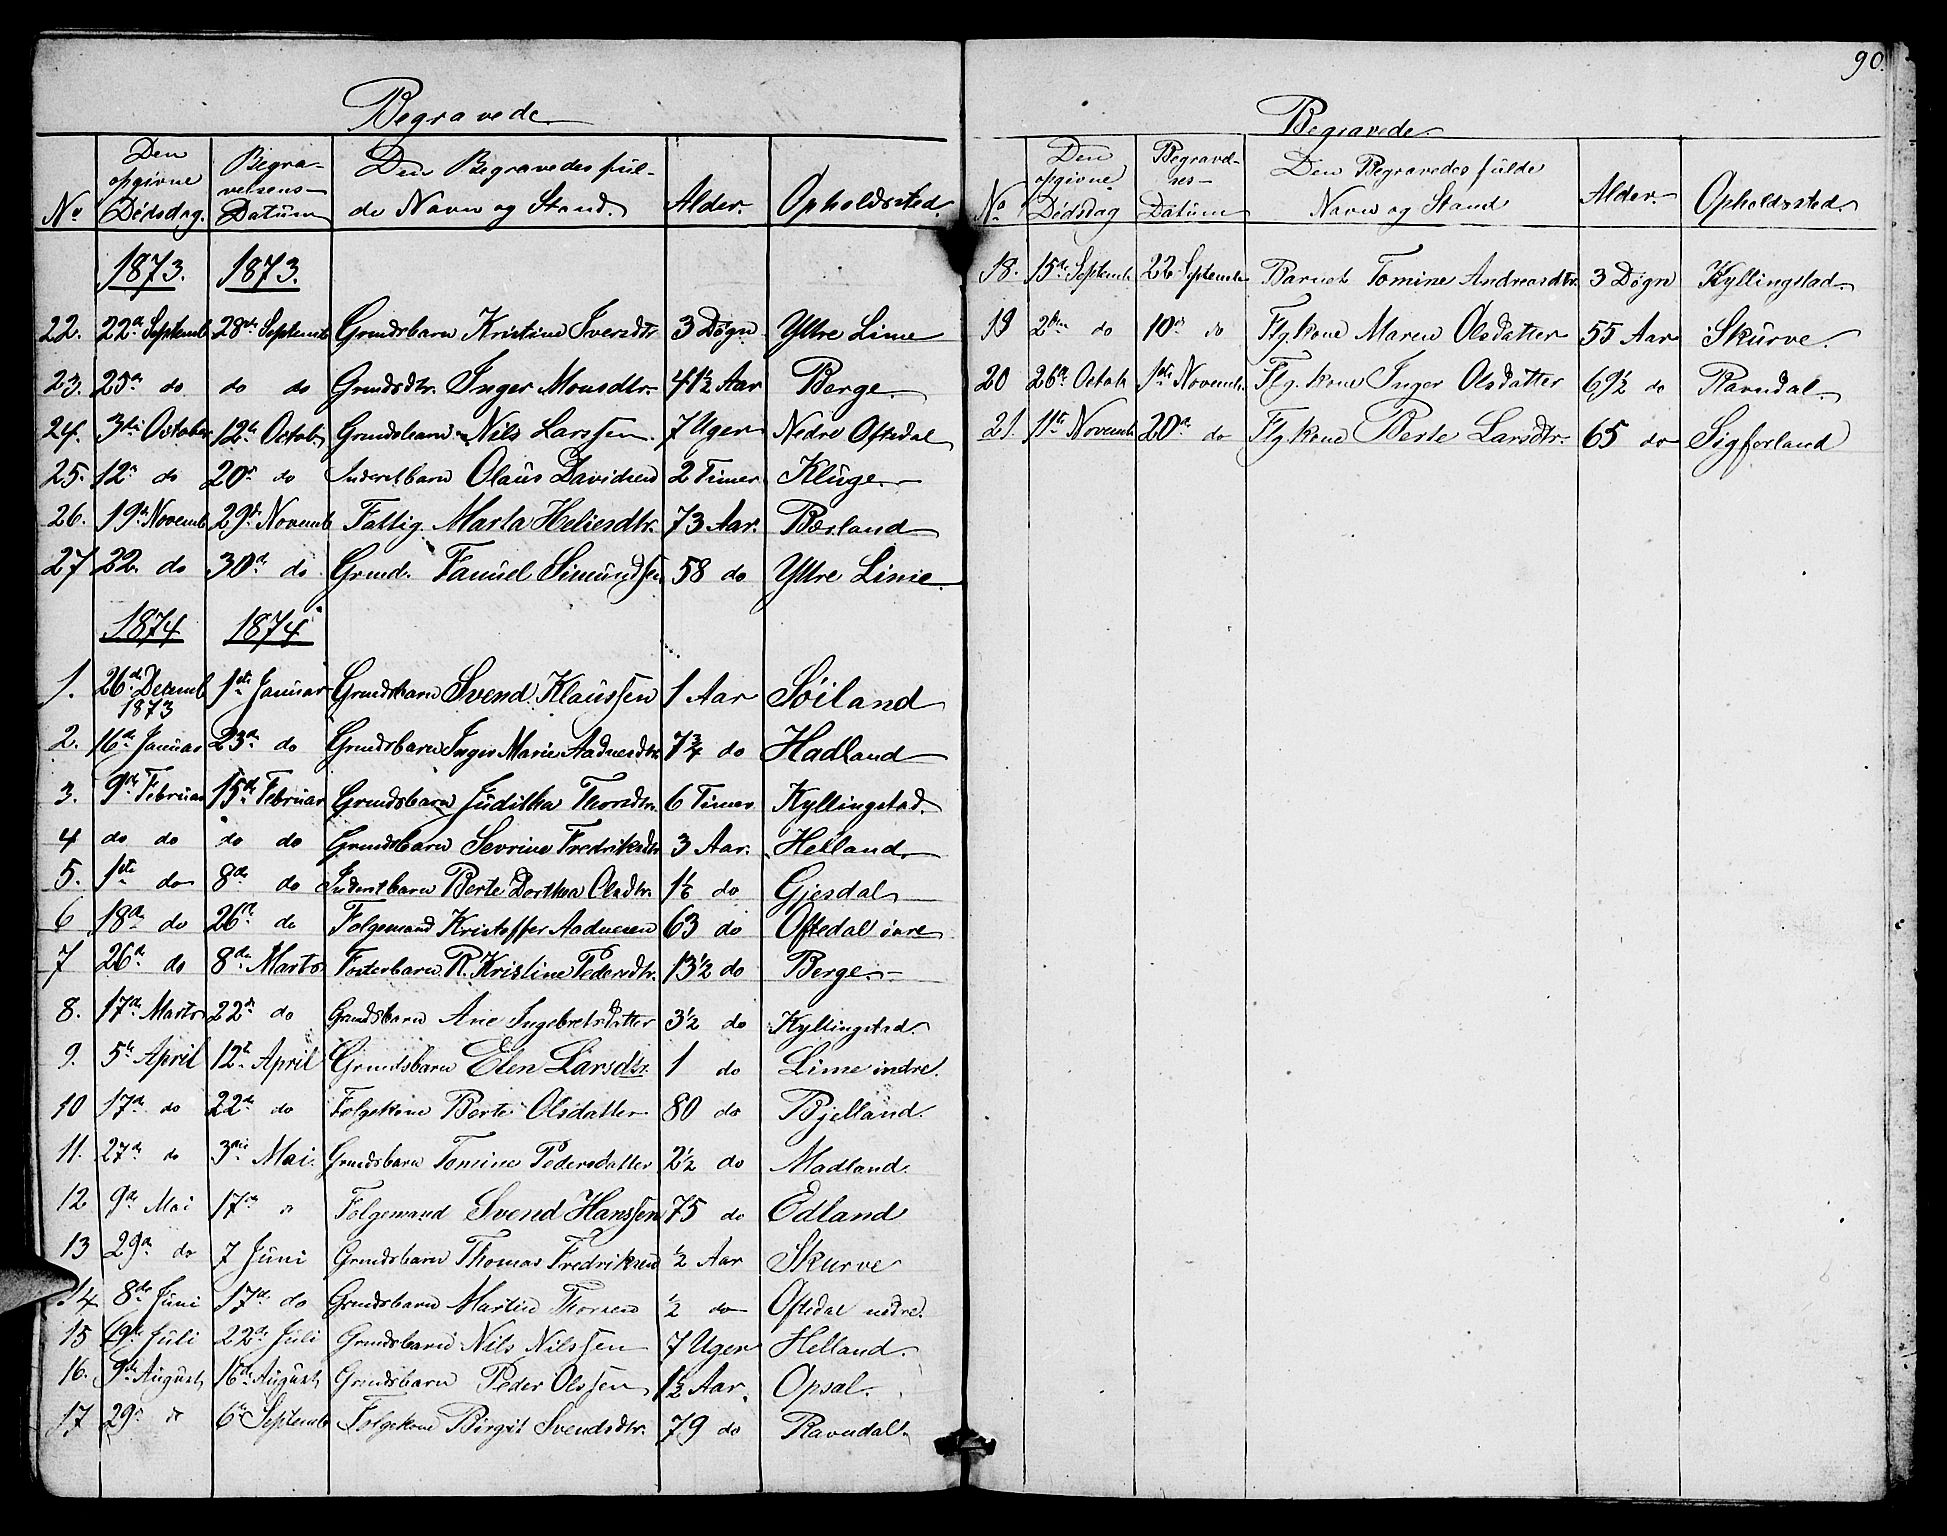 90.
Begravede
No Den opgivne Dödsdag. Begravelsens Datum Den Begravedes fulde Navn og Stand. Alder. Opholdssted.
1873. 1873.
22. 22de Septemb 28de Septemb Grmdsbarn Kristine Iversdtr. 3 Døgn Yttre Lime
23. 23de do do do Grmdsdtr. Inger Monsdtr. 41½ Aar Berge.
24. 3die October 12te Octob Grmdsbarn Nils Larssen. 7 Uger Nedre Oftedal
25. 12te do 20de do Inderstbarn Olaus Davidsen 2 Timer Kluge.
26. 19de Novemb 29de Novemb Fattig. Marta Heliesdtr. 73 Aar. Bærland
27 22. do 30de do Grmd. Samuel Simundsen 58 do Yttre Lime.
1874 1874
1. 26de Decemb 1873 1ste Januar Grmdsbarn Svend Klaussen 1 Aar Söiland
2. 16de Januar 23de do Grmdsbarn Inger Marie Aadnesdtr 7¾ do Hadland
3. 9de Februar 15de Februar Grmdsbarn Juditha Thorsdtr. 6 Timer Kyllingstad.
4 do do do do Grmdsbarn Sevrine Fredriksdtr 3 Aar. Helland.
5. 1ste do 8de do Inderstbarn Berte Dorthea Olsdtr. do Gjesdal
6 18de do 26de do Folgemand Kristoffer Aadnesen 63 do Oftedal övre
7 26de do 8de Marts Fosterbarn R. Kristine Pedersdtr. 13½ do Berge.
8. 17de Marts 22de do Grmdsbarn Ane Ingebretsdatter 3½ do Kyllingstad.
9. 5te April 12te April Grmdsbarn Elen Larsdtr. 1 do Lime indre.
10 17de do 22de do Folgekone Berte Olsdatter 80 do Bjelland.
11. 27de do 3die Mai. Grmdsbarn Tomine Pedersdatter 2½ do Madland.
12 9de Mai 17de " Folgemand Svend Hanssen 75 do Edland
13 29de do 7 Juni Grmdsbarn Thomas Fredriksen ½ Aar Skurve
14 8de Juni 17de do Grmdsbarn Martin Thorsen ½ do Oftedal nedre.
15 Juli 22de Juli Grmdsbarn Nils Nilssen 7 Uger Helland.
16. 9de August 16de August Grmdsbarn Peder Olssen 1½ Aar. Opsal.
17 29de do 6te Septemb Folgekone Birgit Svendsdtr. 79 do Ravndal.
Begravede
No Den opgivne Dödsdag Begravelses- Datum Den Begravedes fulde Navn og Stand Alder. Opholdssted.
18. 15de Septemb 22 Septemb Barnet Tomine Andreasdtr. 3 Døgn Kyllingstad.
19 2den do 10de do Flg. kone Maren Olsdatter 55 Aar Skurve.
20 26de Octob 1ste Novemb. Flg. kone Inger Olsdatter 69½ do Ravndal.
21. 11te Novemb 20de do Flg kone Berte Larsdtr. 65 do Sigferland